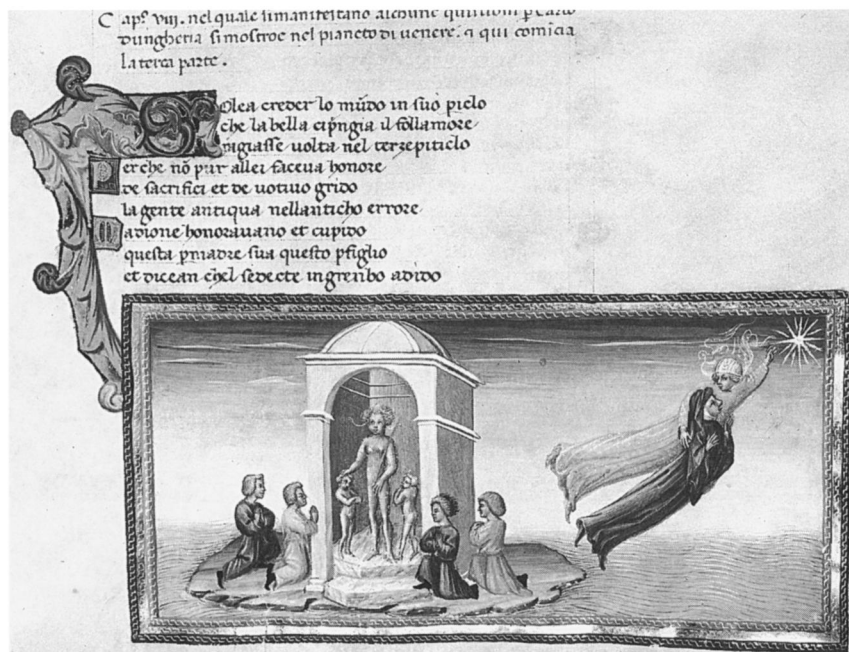 C ap° viii. nel quale simanifestano alchune quistioni p carlo
dungheria simostroe nel pianeto di uenere. & qui comicia
la terça parte.
Solea creder lo mūdo in suo piclo
che la bella cip̄ngia il follamore
uolta nel
Perche nō pur allei faceua honore
de sacrifici et de uotiuo grido
la gente antiqua nellanticho errore
adione honorauano et cupido
questa p madre sua questo p figlio
et dicean chel sedecte ingrenbo adido